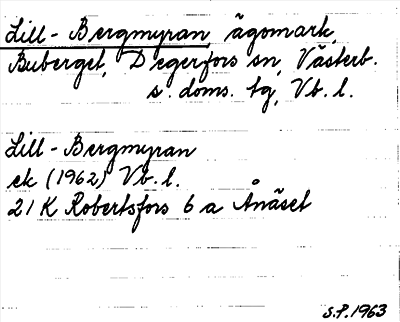 Lill-Bergmyran ägomark,
Buberget, Degerfors sn, Västerb.
s. doms. tg, Vb. l.
Lill-Bergmyran
ek (1962) Vb. l.
21 K Robertsfors 6 a Ånäset
S.P. 1963